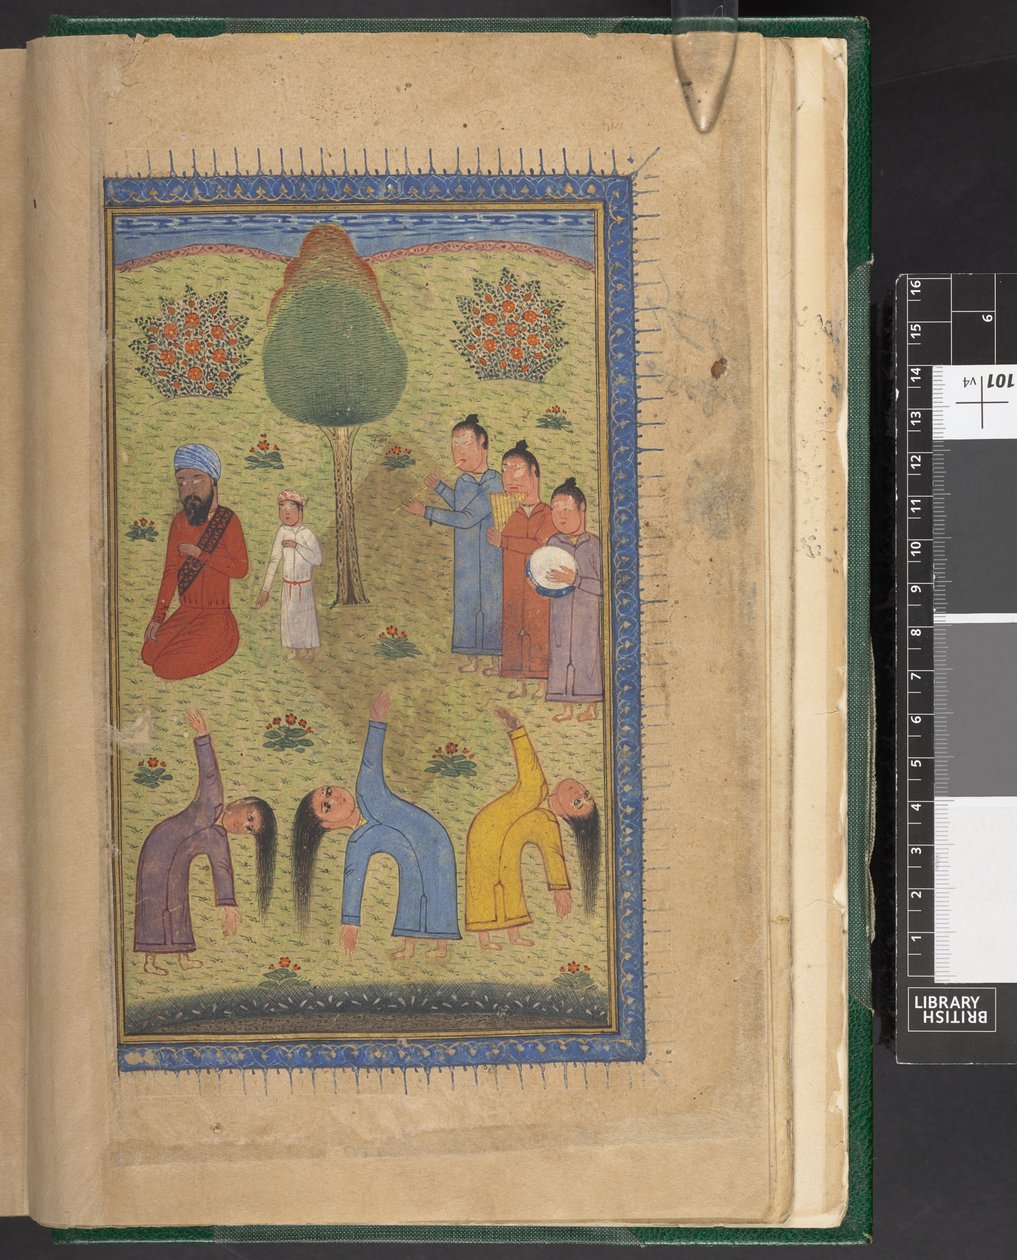 16
15
14
13
12
11
10
9
8
7
6
5
4
3
2
1
6
101
v4
LIBRARY
BRITISH